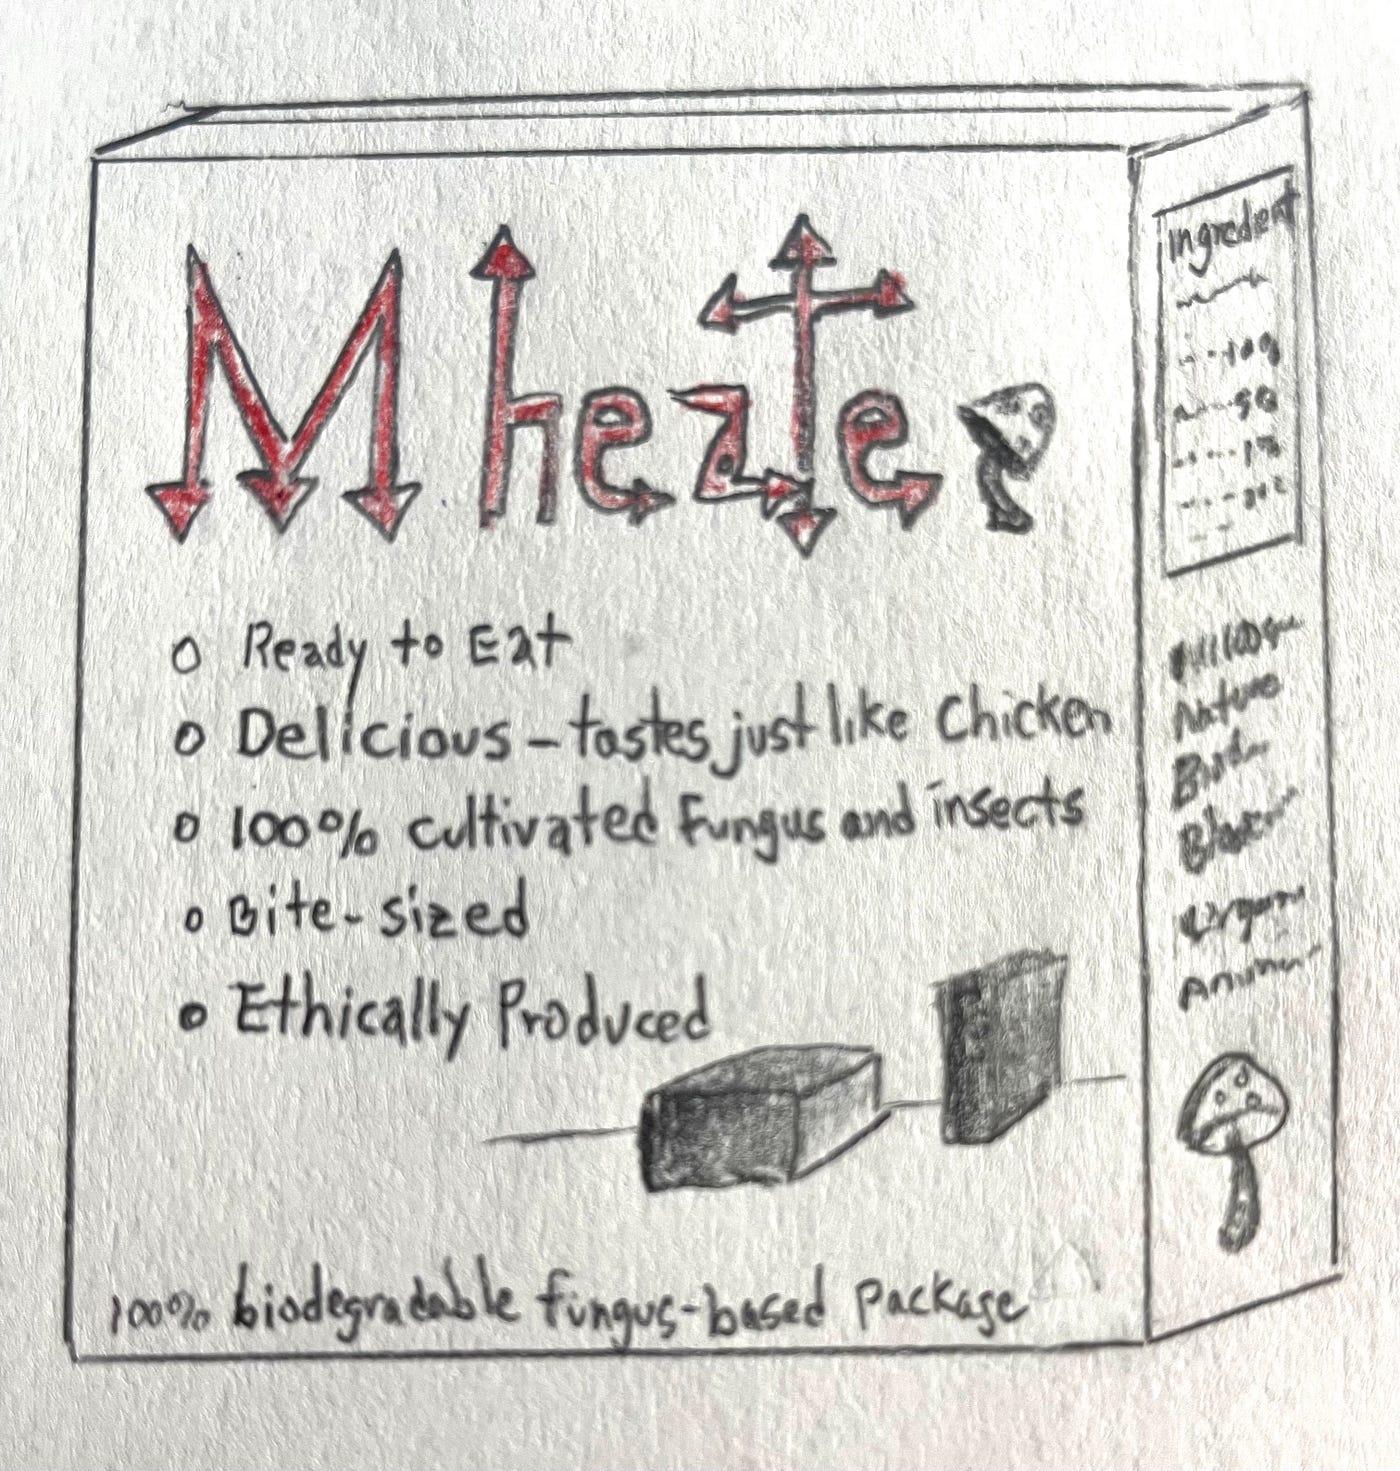 Mheate
Ready to Eat
Delicious - tastes just like Chicken
100% cultivated Fungus and insects
Bite-sized
Ethically Produced
100% biodegradable fungus-based package
Ingredient
Nature